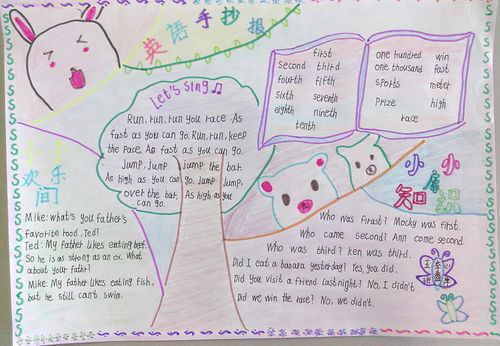 英語手抄报
Let's sing
Run, run, run you race. As
fast as you can go. Run, run, keep
the race. As fast as you can go.
Jump, Jump Jump the bar.
As high as you can go. Jump Jump,
over the bar. As high as you
can go.
first
second third
fourth fifth
sixth seventh
eighth nineth
tenth
one hundred win
one thousand fast
sports meter
prize high
race
欢乐
间
Mike: what's you father's
favorite food, Ted?
Ted: My father likes eating beef.
So he is as strong as an ox. What
about your fathr?
Mike: My father likes eating fish,
but he still can't swim.
小小
知识
Who was firast? Mocky was first.
Who came second? Ann come second.
Who was third? ken was third.
Did I eat a banara yesterday? Yes, you did.
Did you visit a friend lastnight? No, I didn't
Did we win the race? No, we didn't.